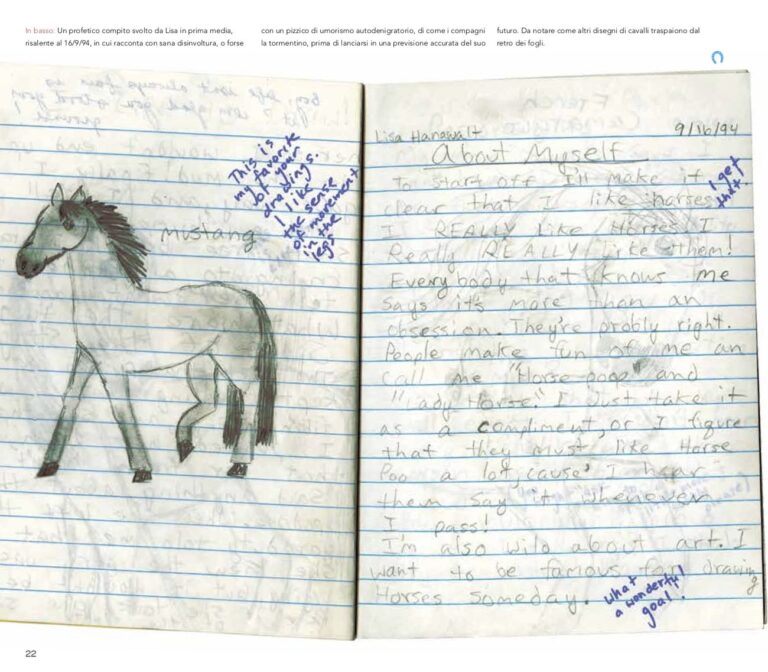 In basso: Un profetico compito svolto da Lisa in prima media,
risalente al 16/9/94, in cui racconta con sana disinvoltura, o forse
con un pizzico di umorismo autodenigratorio, di come i compagni
la tormentino, prima di lanciarsi in una previsione accurata del suo
futuro. Da notare come altri disegni di cavalli traspaiono dal
retro dei fogli.
This is
my favorite
of your
drawings.
I like
the sense
of movement
in the
legs
mustang
Lisa Hanawalt
9/16/94
About Myself
To start off I'll make it
clear that I like horses.
I get
that!
I REALLY like Horses! I
Really REALLY like them!
Everybody that knows me
says it's more than an
obsession. They're probly right.
People make fun of me an
call me "Horse poop" and
"Lady Horse." I Just take it
as a compliment, or I figure
that they must like Horse
Poo a lot, cause' I hear
them say it whenever
I pass!
I'm also wild about art. I
want to be famous for drawing
Horses someday.
what
a wonderful
goal!
22